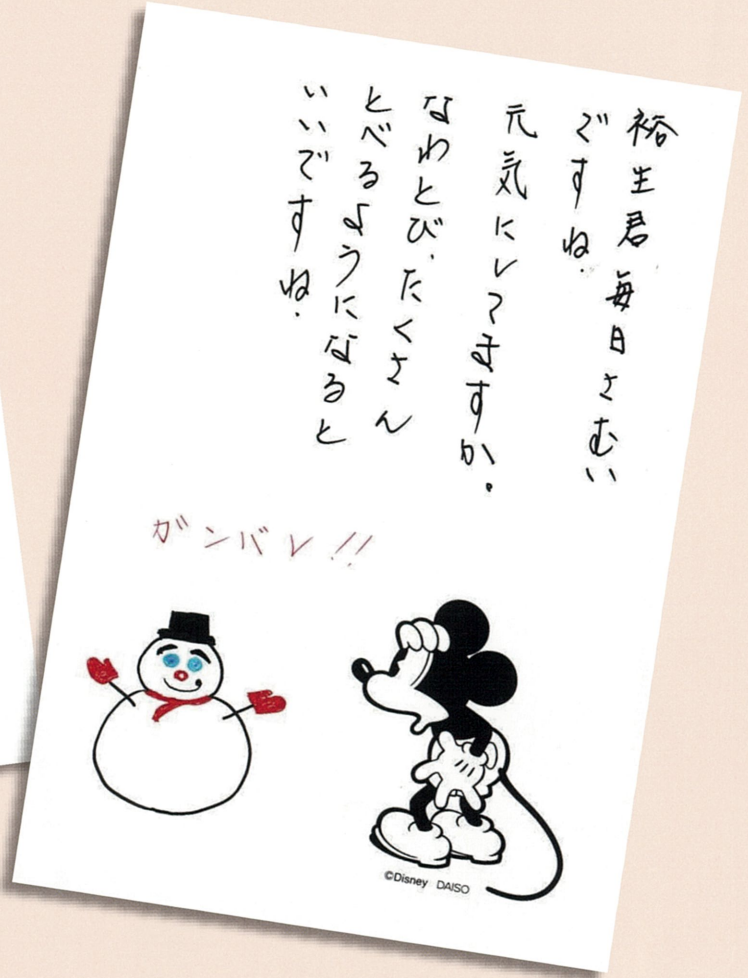 裕生君 毎日さむい
ですね.
元気にしてますか.
なわとび、たくさん
とべるようになると
いいですね.
ガンバレ!!
©Disney DAISO